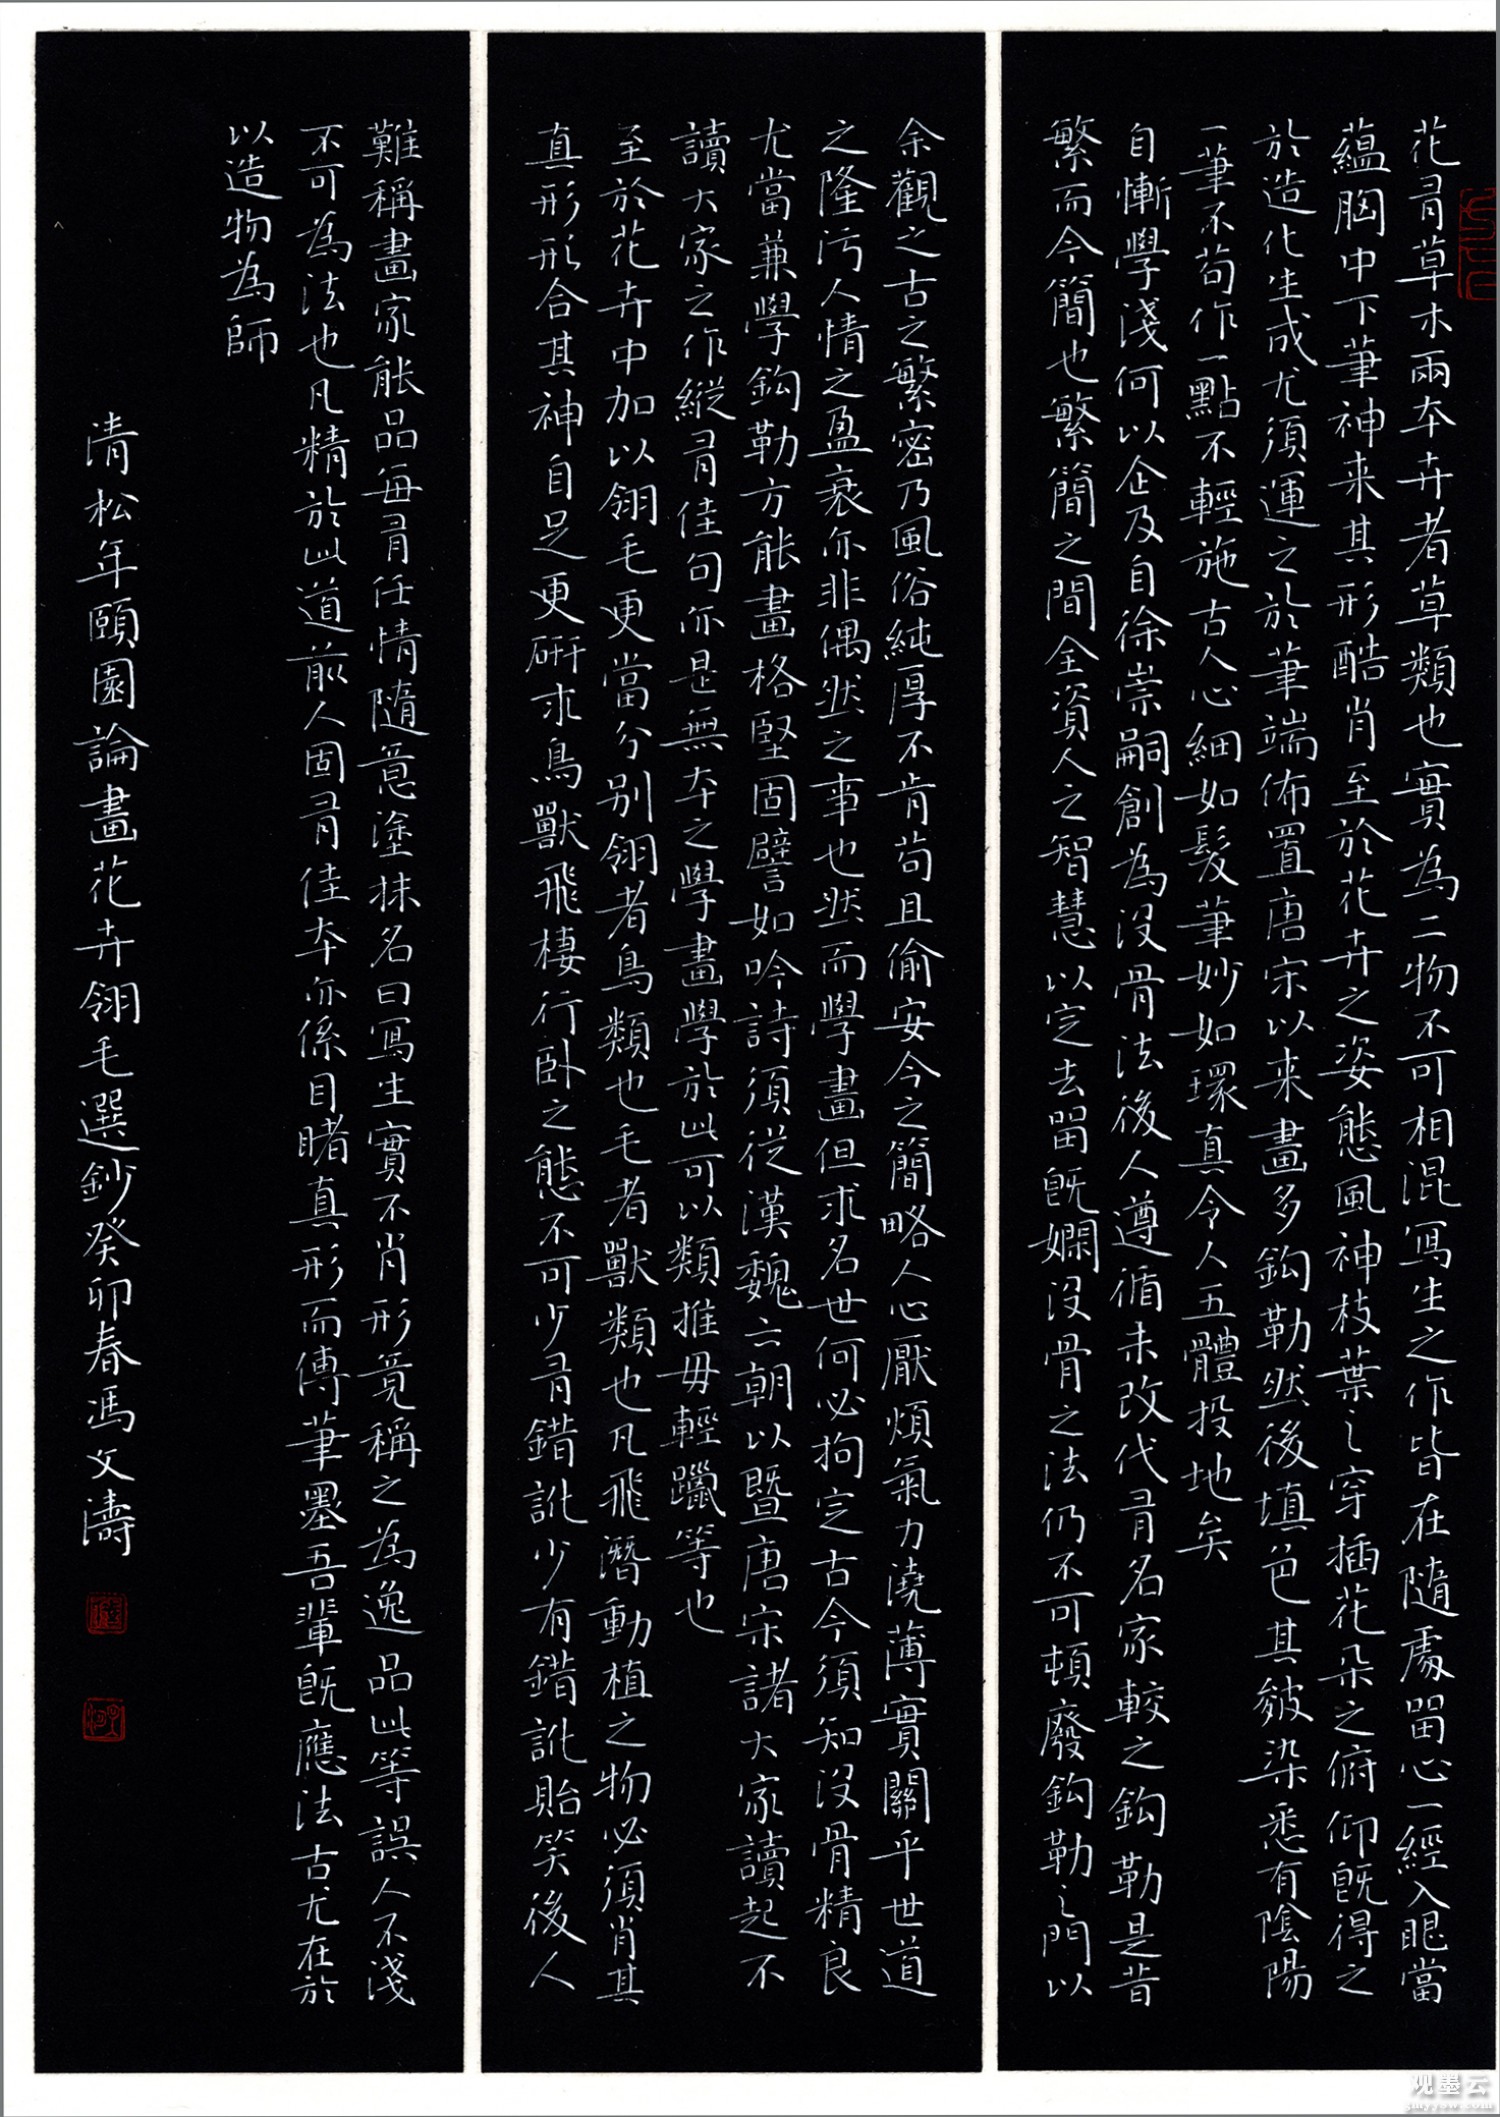 花有草木兩本卉者草類也實為二物不可相混寫生之作皆在隨處留心一經入眼當
蘊胸中下筆神来其形酷肖至於花卉之姿態風神枝葉之穿插花朵之俯仰既得之
於造化生成尤須運之於筆端佈置唐宋以来畫多鈎勒然後填色其皴染悉有陰陽
一筆不苟作一點不輕施古人心細如髮筆妙如環真令人五體投地矣
自慚學淺何以企及自徐崇嗣創為没骨法後人遵循未改代有名家較之鈎勒是昔
繁而今簡也繁簡之間全資人之智慧以定去留既嫻没骨之法仍不可頓廢鈎勒之門以
余觀之古之繁密乃風俗純厚不肯苟且偷安今之簡略人心厭煩氣力澆薄實關乎世道
之隆污人情之盈衰亦非偶然之事也然而學畫但求名世何必拘定古今須知没骨精良
尤當兼學鈎勒方能畫格堅固譬如吟詩須從漢魏六朝以暨唐宋諸大家讀起不
讀大家之作縱有佳句亦是無本之學畫學於此可以類推毋輕躐等也
至於花卉中加以翎毛更當分別翎者鳥類也毛者獸類也凡飛潛動植之物必須肖其
真形形合其神自足更研求鳥獸飛棲行卧之態不可少有錯訛少有錯訛貽笑後人
難稱畫家能品每有任情隨意塗抹名曰寫生實不肖形竟稱之為逸品此等誤人不淺
不可為法也凡精於此道前人固有佳本亦係目睹真形而傳筆墨吾輩既應法古尤在於
以造物為師
清松年頤園論畫花卉翎毛選鈔癸卯春馮文濤
观墨云
gmyyuw.com